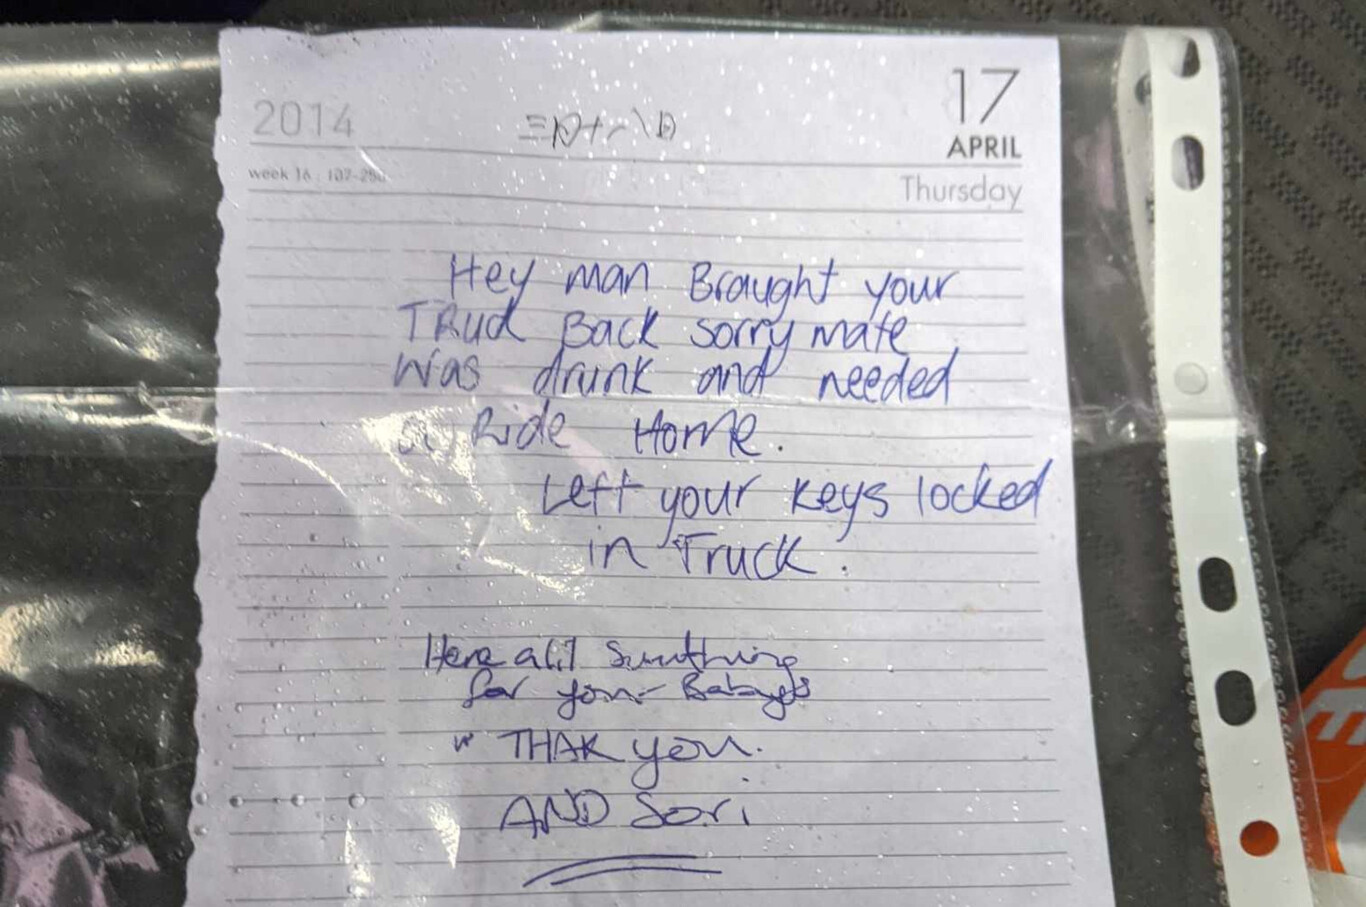 2014
17
APRIL
week 16 : 107-258
Thursday
Hey man Brought your
TRuck Back sorry mate
Was drunk and needed
a Ride Home.
Left your keys locked
in Truck.
Here a lil Sumthing
for your Babys
THAK you.
AND Sori